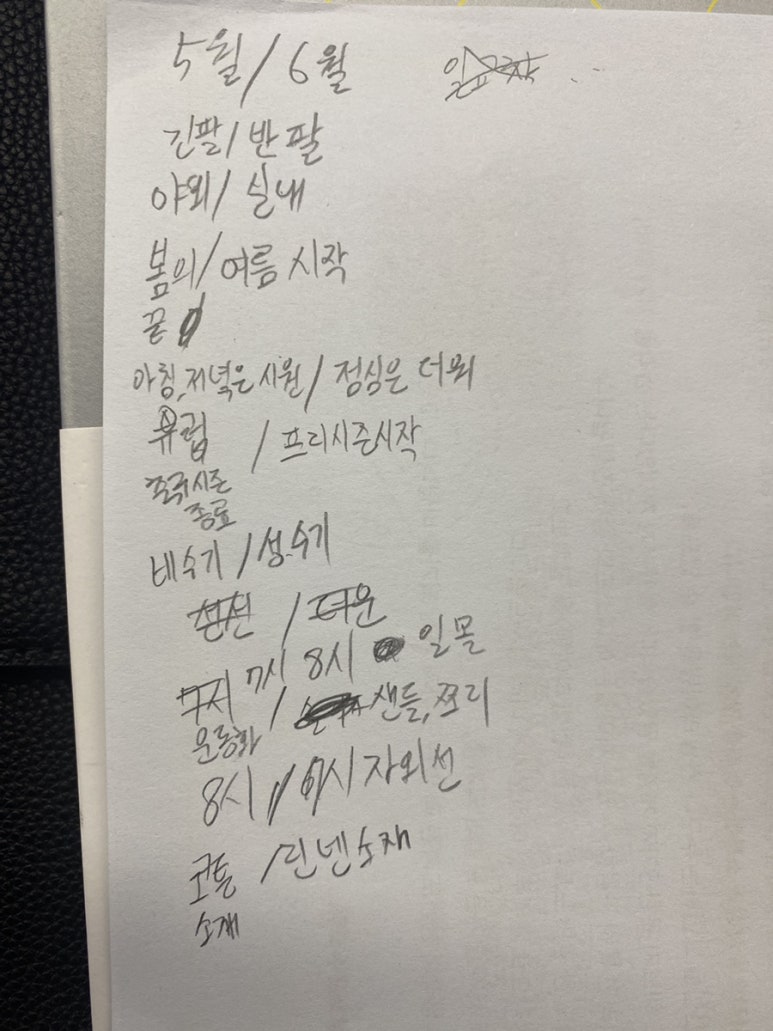 5월 / 6월
긴팔 / 반팔
야외 / 실내
봄의 / 여름 시작
끝
아침, 저녁은 시원 / 점심은 더워
유럽 / 프리시즌시작
축구시즌
종료
비수기 / 성수기
선선 / 더운
7시 8시 일몰
운동화 / 샌들, 쪼리
8시 / 시 자외선
코튼 / 린넨소재
소재